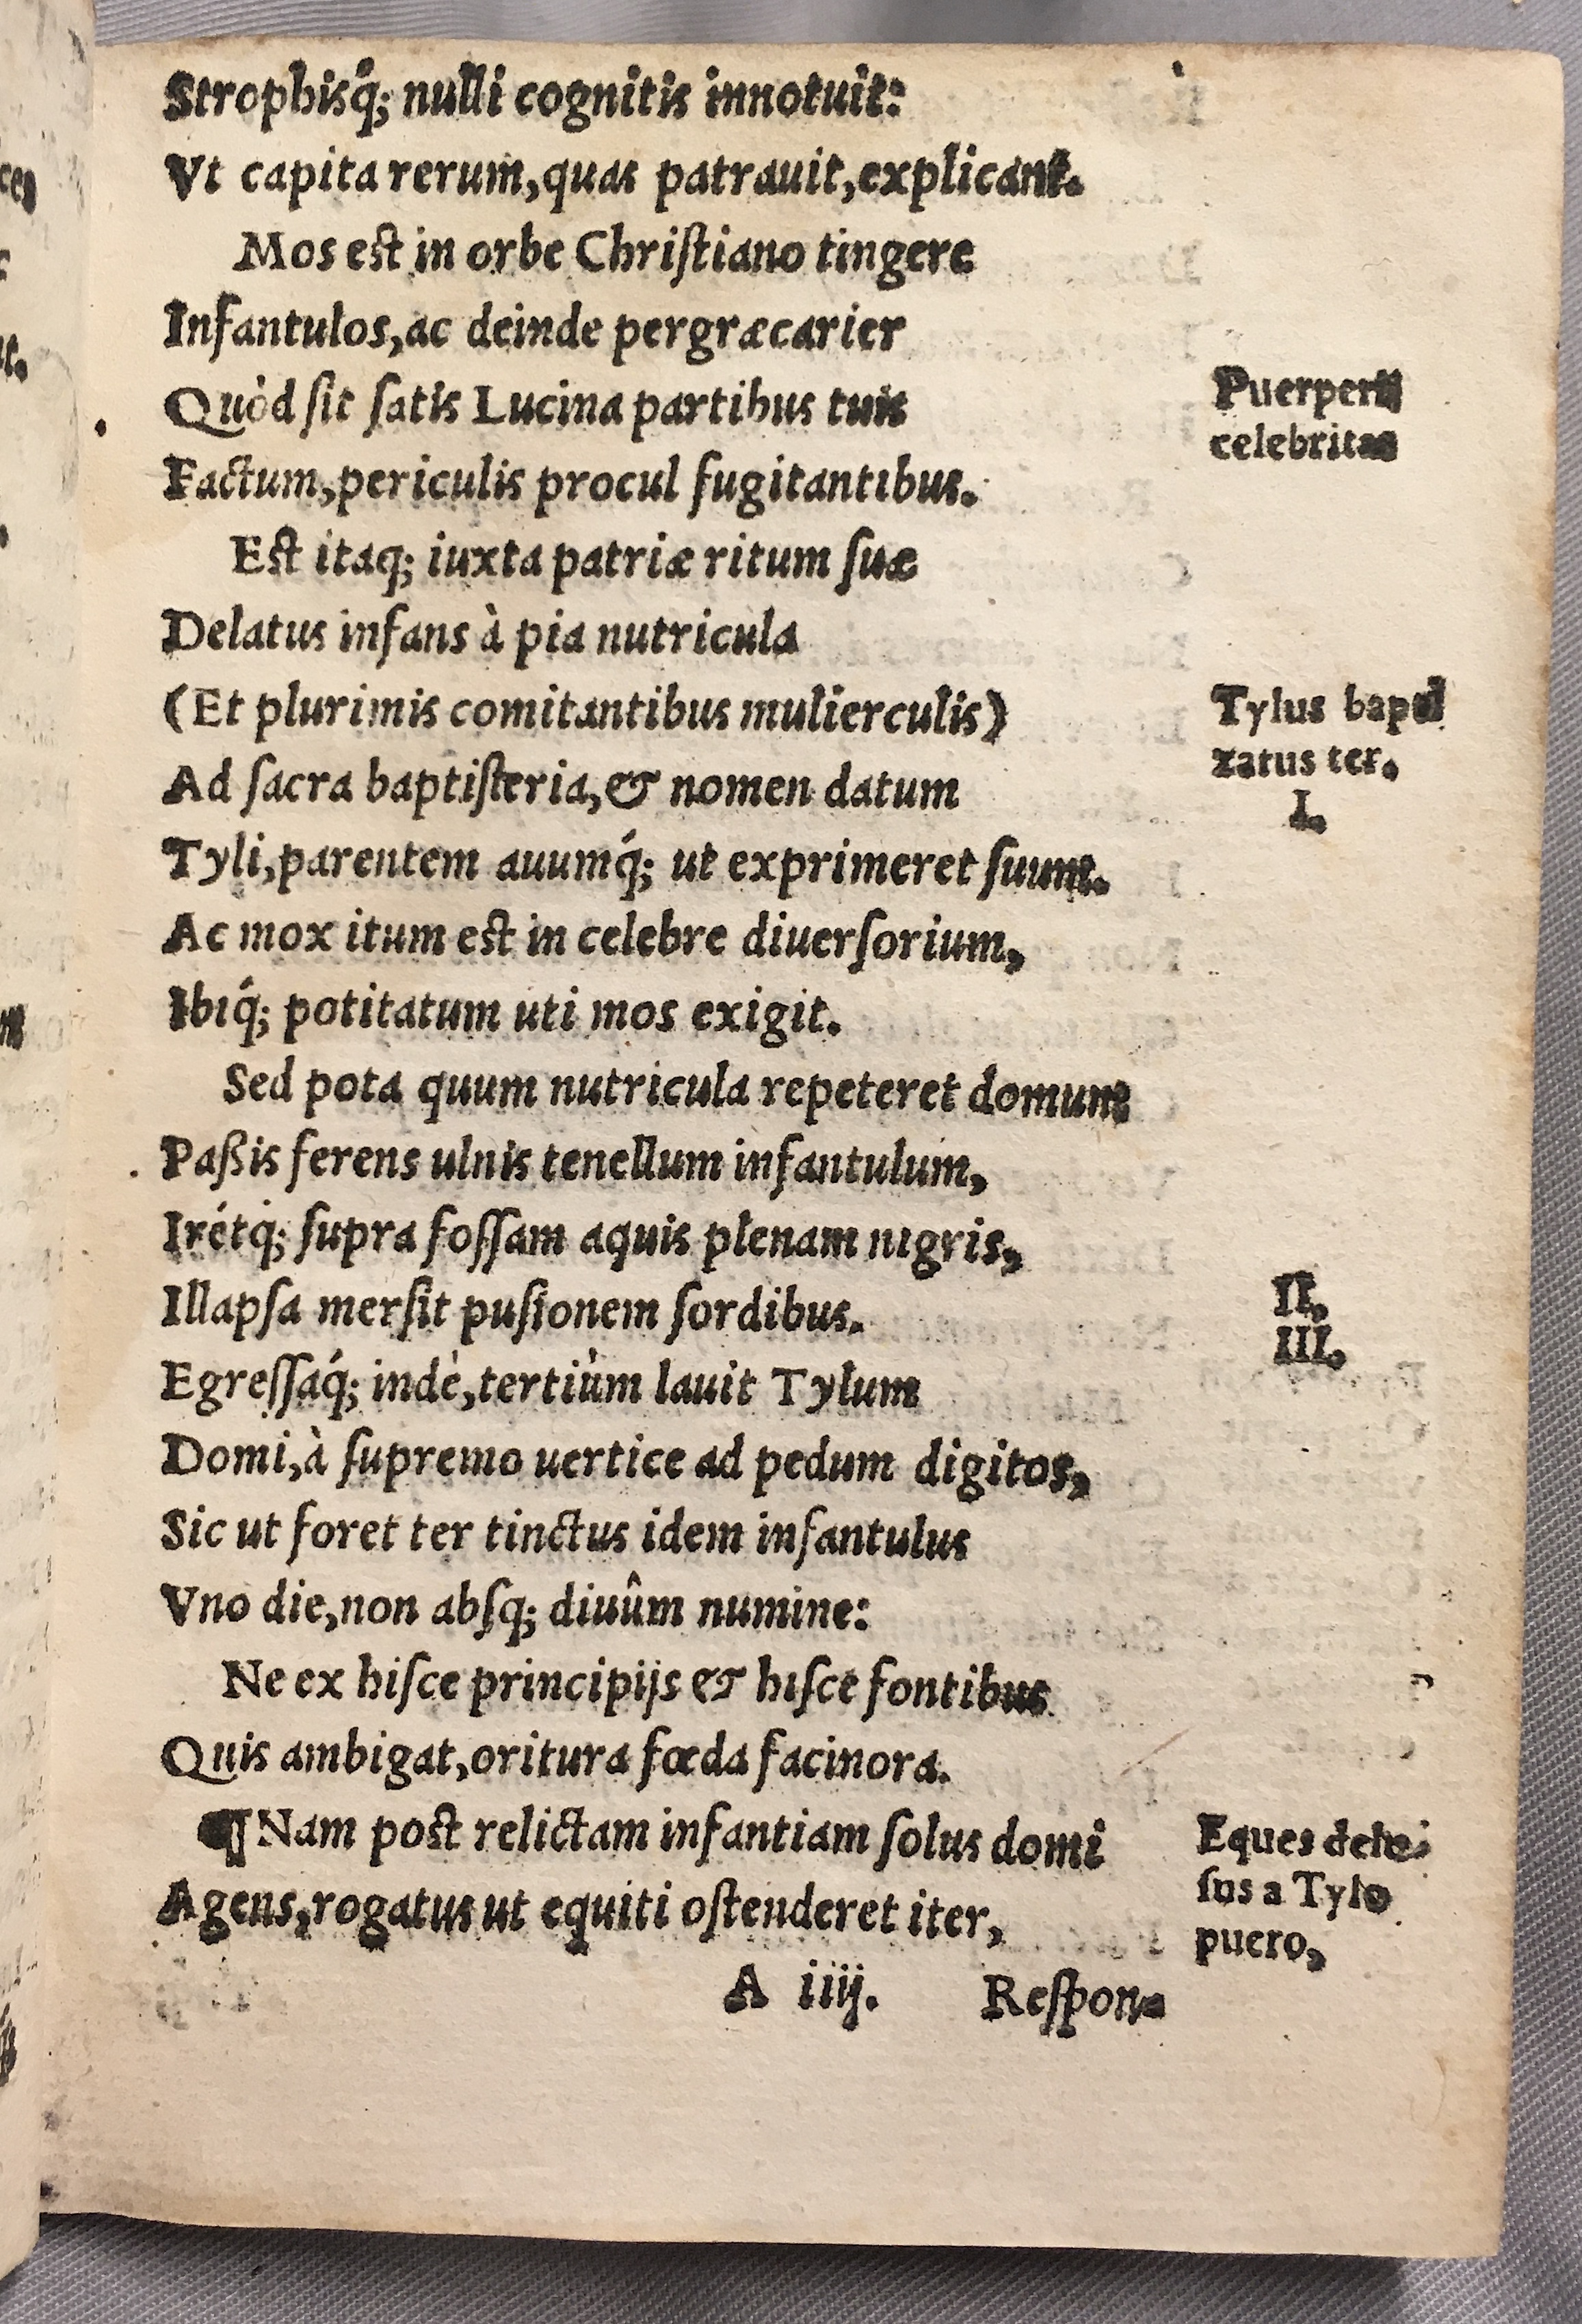 Strophisq́; nulli cognitis innotuit:
Vt capita rerum, quas patrauit, explicant.
Mos est in orbe Christiano tingere
Infantulos, ac deinde pergræcarier
Quòd sit satis Lucina partibus tuis
Puerperij
celebritas
Factum, periculis procul fugitantibus.
Est itaq; iuxta patriæ ritum suæ
Delatus infans à pia nutricula
(Et plurimis comitantibus mulierculis)
Tylus bapti
zatus ter.
I.
Ad sacra baptisteria, & nomen datum
Tyli, parentem auumq́; ut exprimeret suum.
Ac mox itum est in celebre diuersorium,
Ibiq́; potitatum uti mos exigit.
Sed pota quum nutricula repeteret domum
Paßis ferens ulnis tenellum infantulum,
Irétq; supra fossam aquis plenam nigris,
Illapsa mersit pusionem sordibus.
II.
III.
Egressaq́; indè, tertiùm lauit Tylum
Domi, à supremo uertice ad pedum digitos,
Sic ut foret ter tinctus idem infantulus
Vno die, non absq; diuûm numine:
Ne ex hisce principijs & hisce fontibus
Quis ambigat, oritura fœda facinora.
¶ Nam post relictam infantiam solus domi
Agens, rogatus ut equiti ostenderet iter,
Eques
sus a Tylo
puero,
A iiij. Respon-